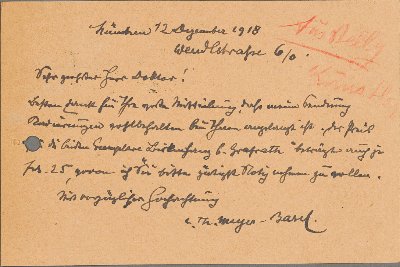 München 12 Dezember 1918
Wendlstrasse 6/0.
Sehr geehrter Herr Doktor!
Besten Dank für Ihre gefl. Mitteilung, dass meine Sendung
Radierungen wohlbehalten bei Ihnen angelangt ist. Der Preis
die beiden Exemplare b. beträgt auch je
25, wovon ich Sie bitte Notiz nehmen zu wollen.
Mit vorzüglicher Hochachtung
C. Th. Meyer-Basel